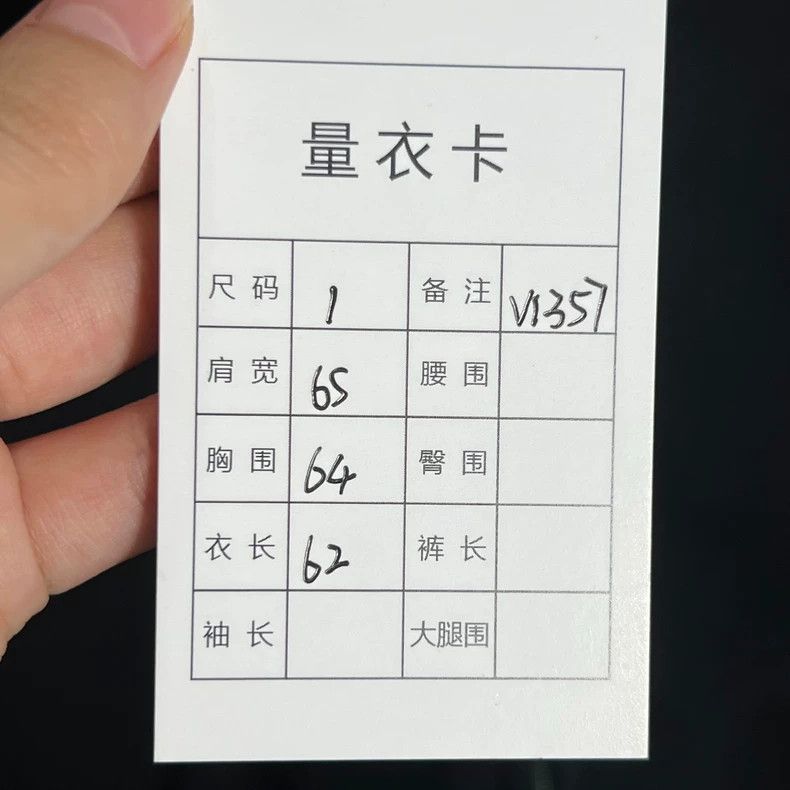 量衣卡
尺码 1 备注 V1357
肩宽 65 腰围
胸围 64 臀围
衣长 62 裤长
袖长 大腿围